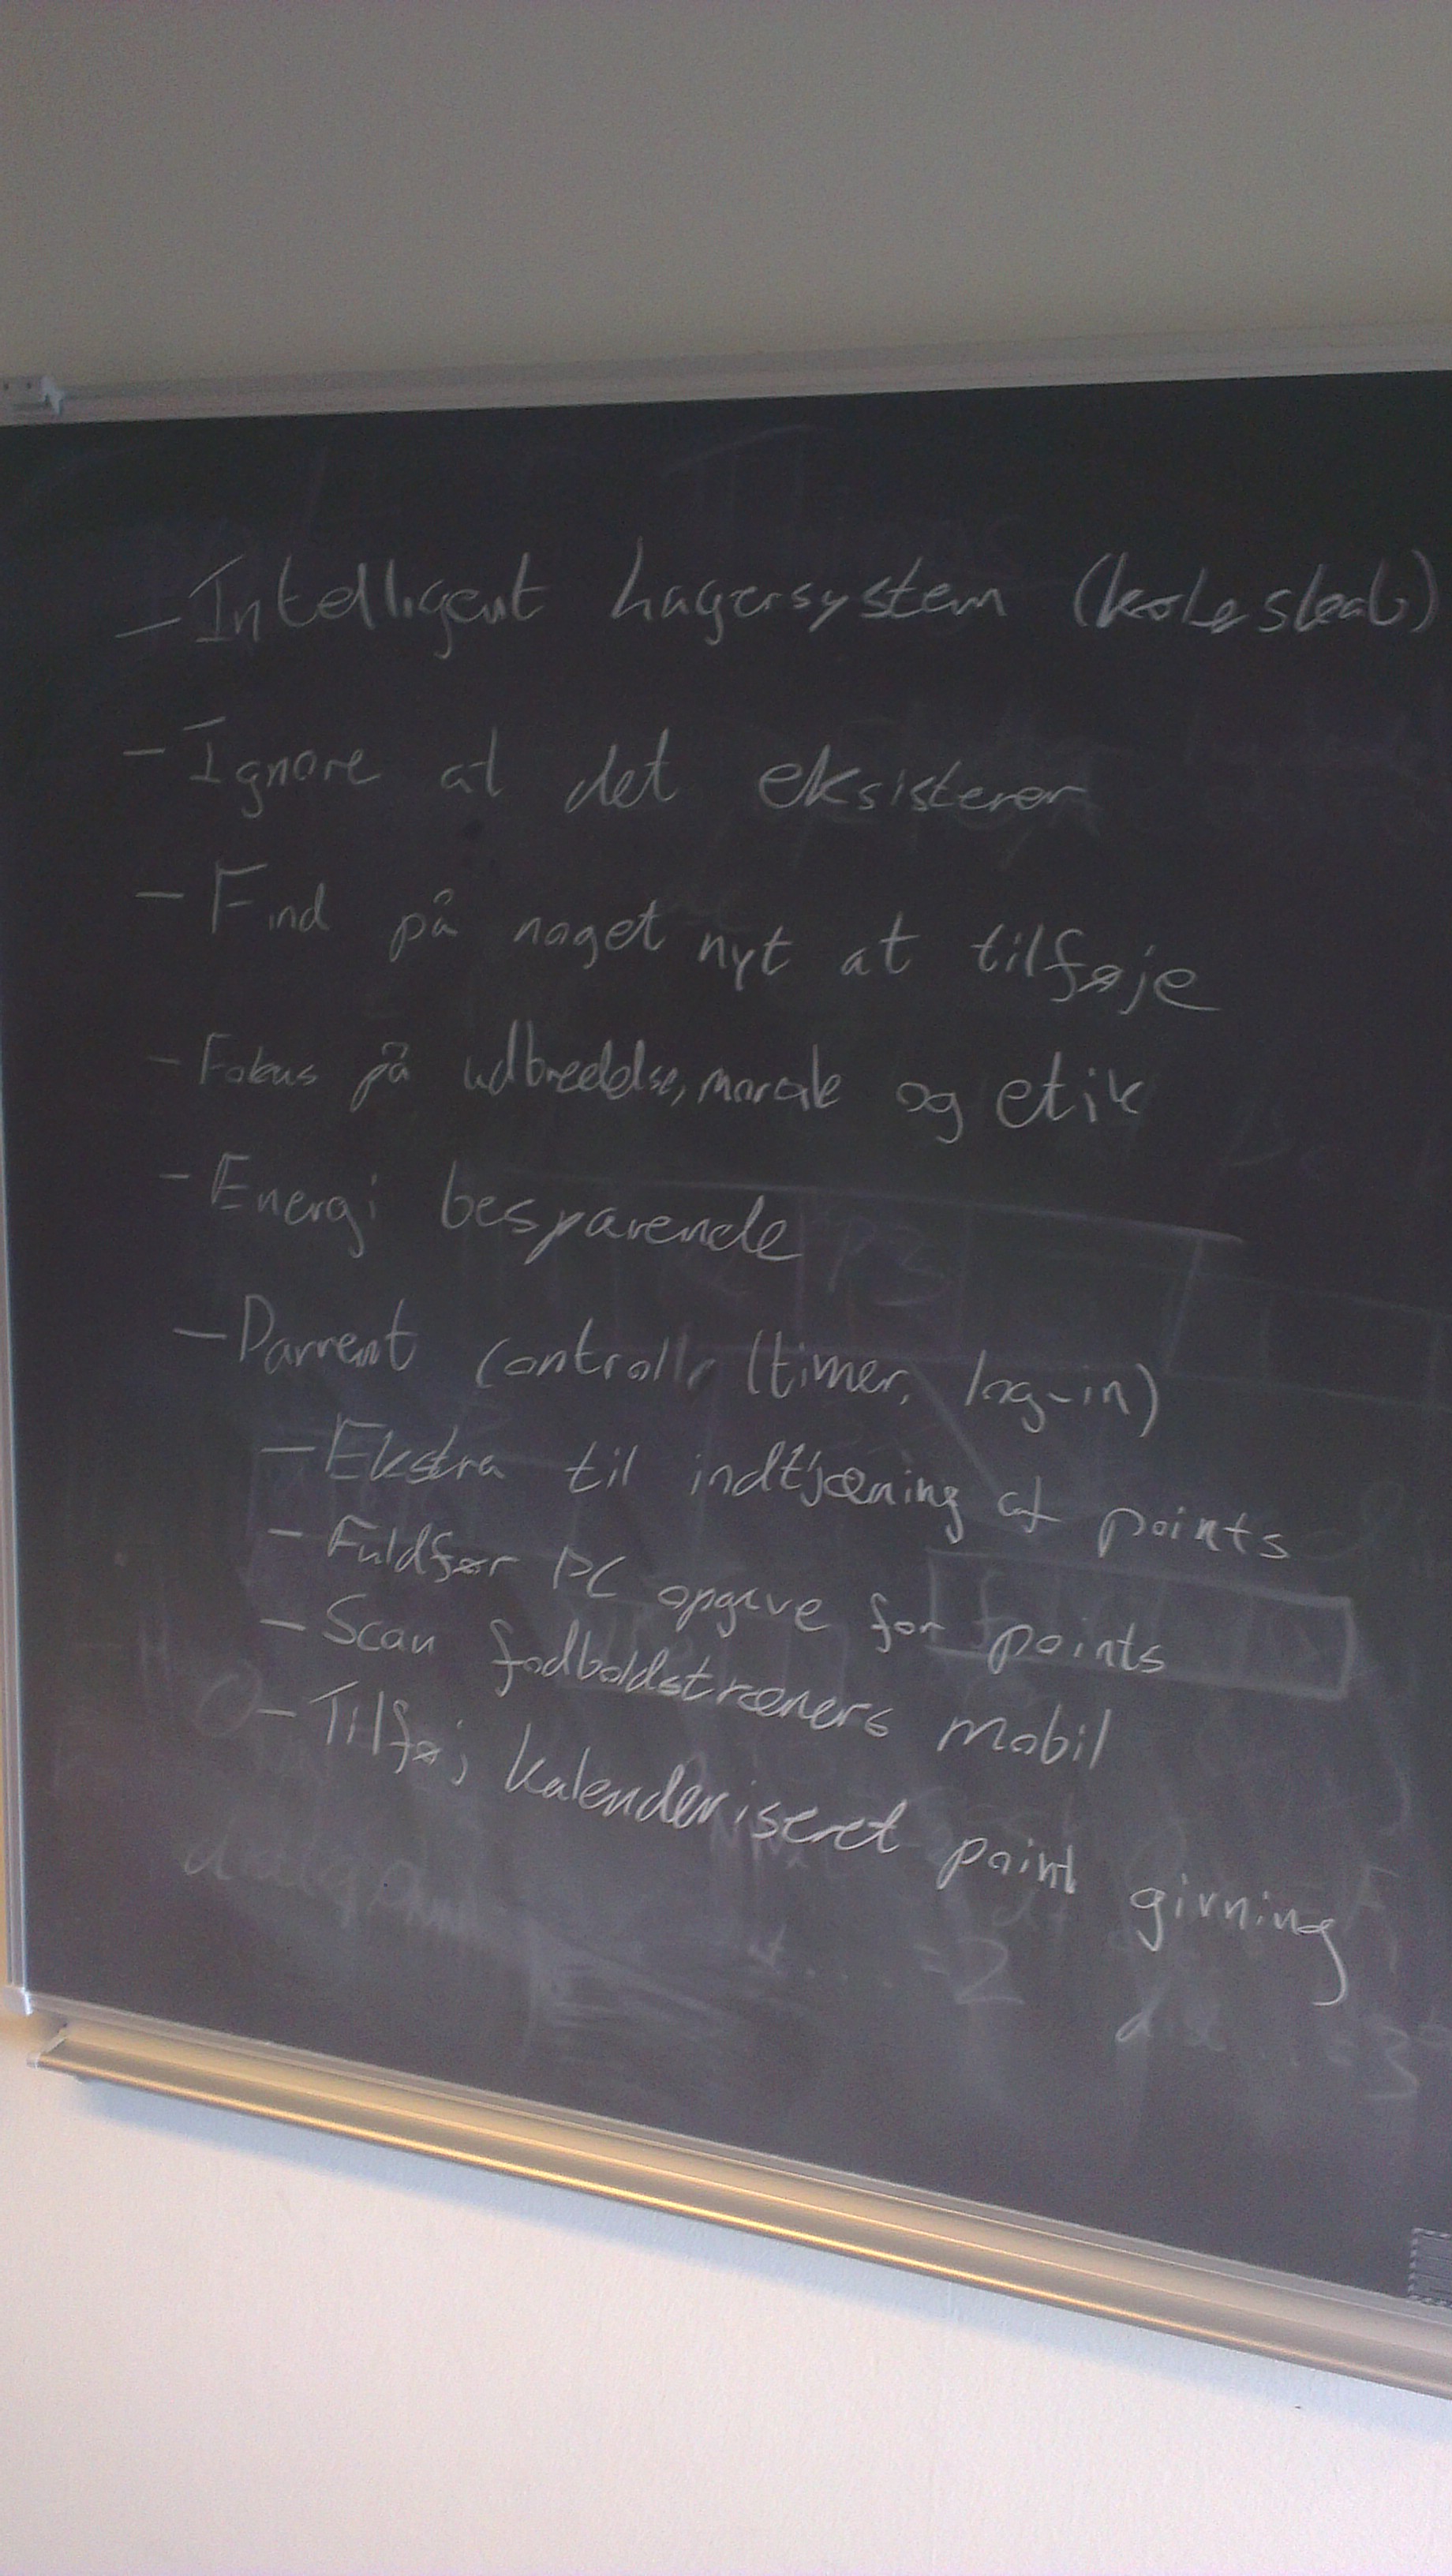 - Intelligent lagersystem (køleskab)
- Ignore at det eksisterer
- Find på noget nyt at tilføje
- Fokus på udbredelse, morale og etik
- Energi besparende
- Parrent controll (timer, log-in)
- Ekstra til indtjæning af points
- Fuldfør PC opgave for points
- Scan fodboldstræners mobil
- Tilføj kalenderiseret point givning